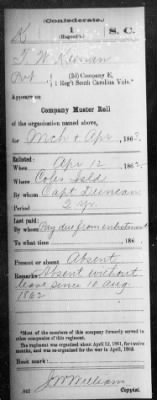 (Confederate.)
K 1 S. C.
(Hagood's)
T. W. Keenan
Pvt, (2d) Company E,
1 Reg't South Carolina Vols.*
Appears on
Company Muster Roll
of the organization named above,
for Mch & Apr, 186
Enlisted:
When Apr 12, 186
Where Coles Isld
By whom Capt Duncan
Period 2 yrs.
Last paid:
By whom Pay due from enlistment
To what time 186
Present or absent Absent
Remarks: Absent without
leave since 10 aug
1862
*Most of the members of this company formerly served in other
companies of this regiment.
The regiment was organized about April 12, 1861, for twelve
months, and was re-organized for the war in April, 1862.
J W William
Copyist.